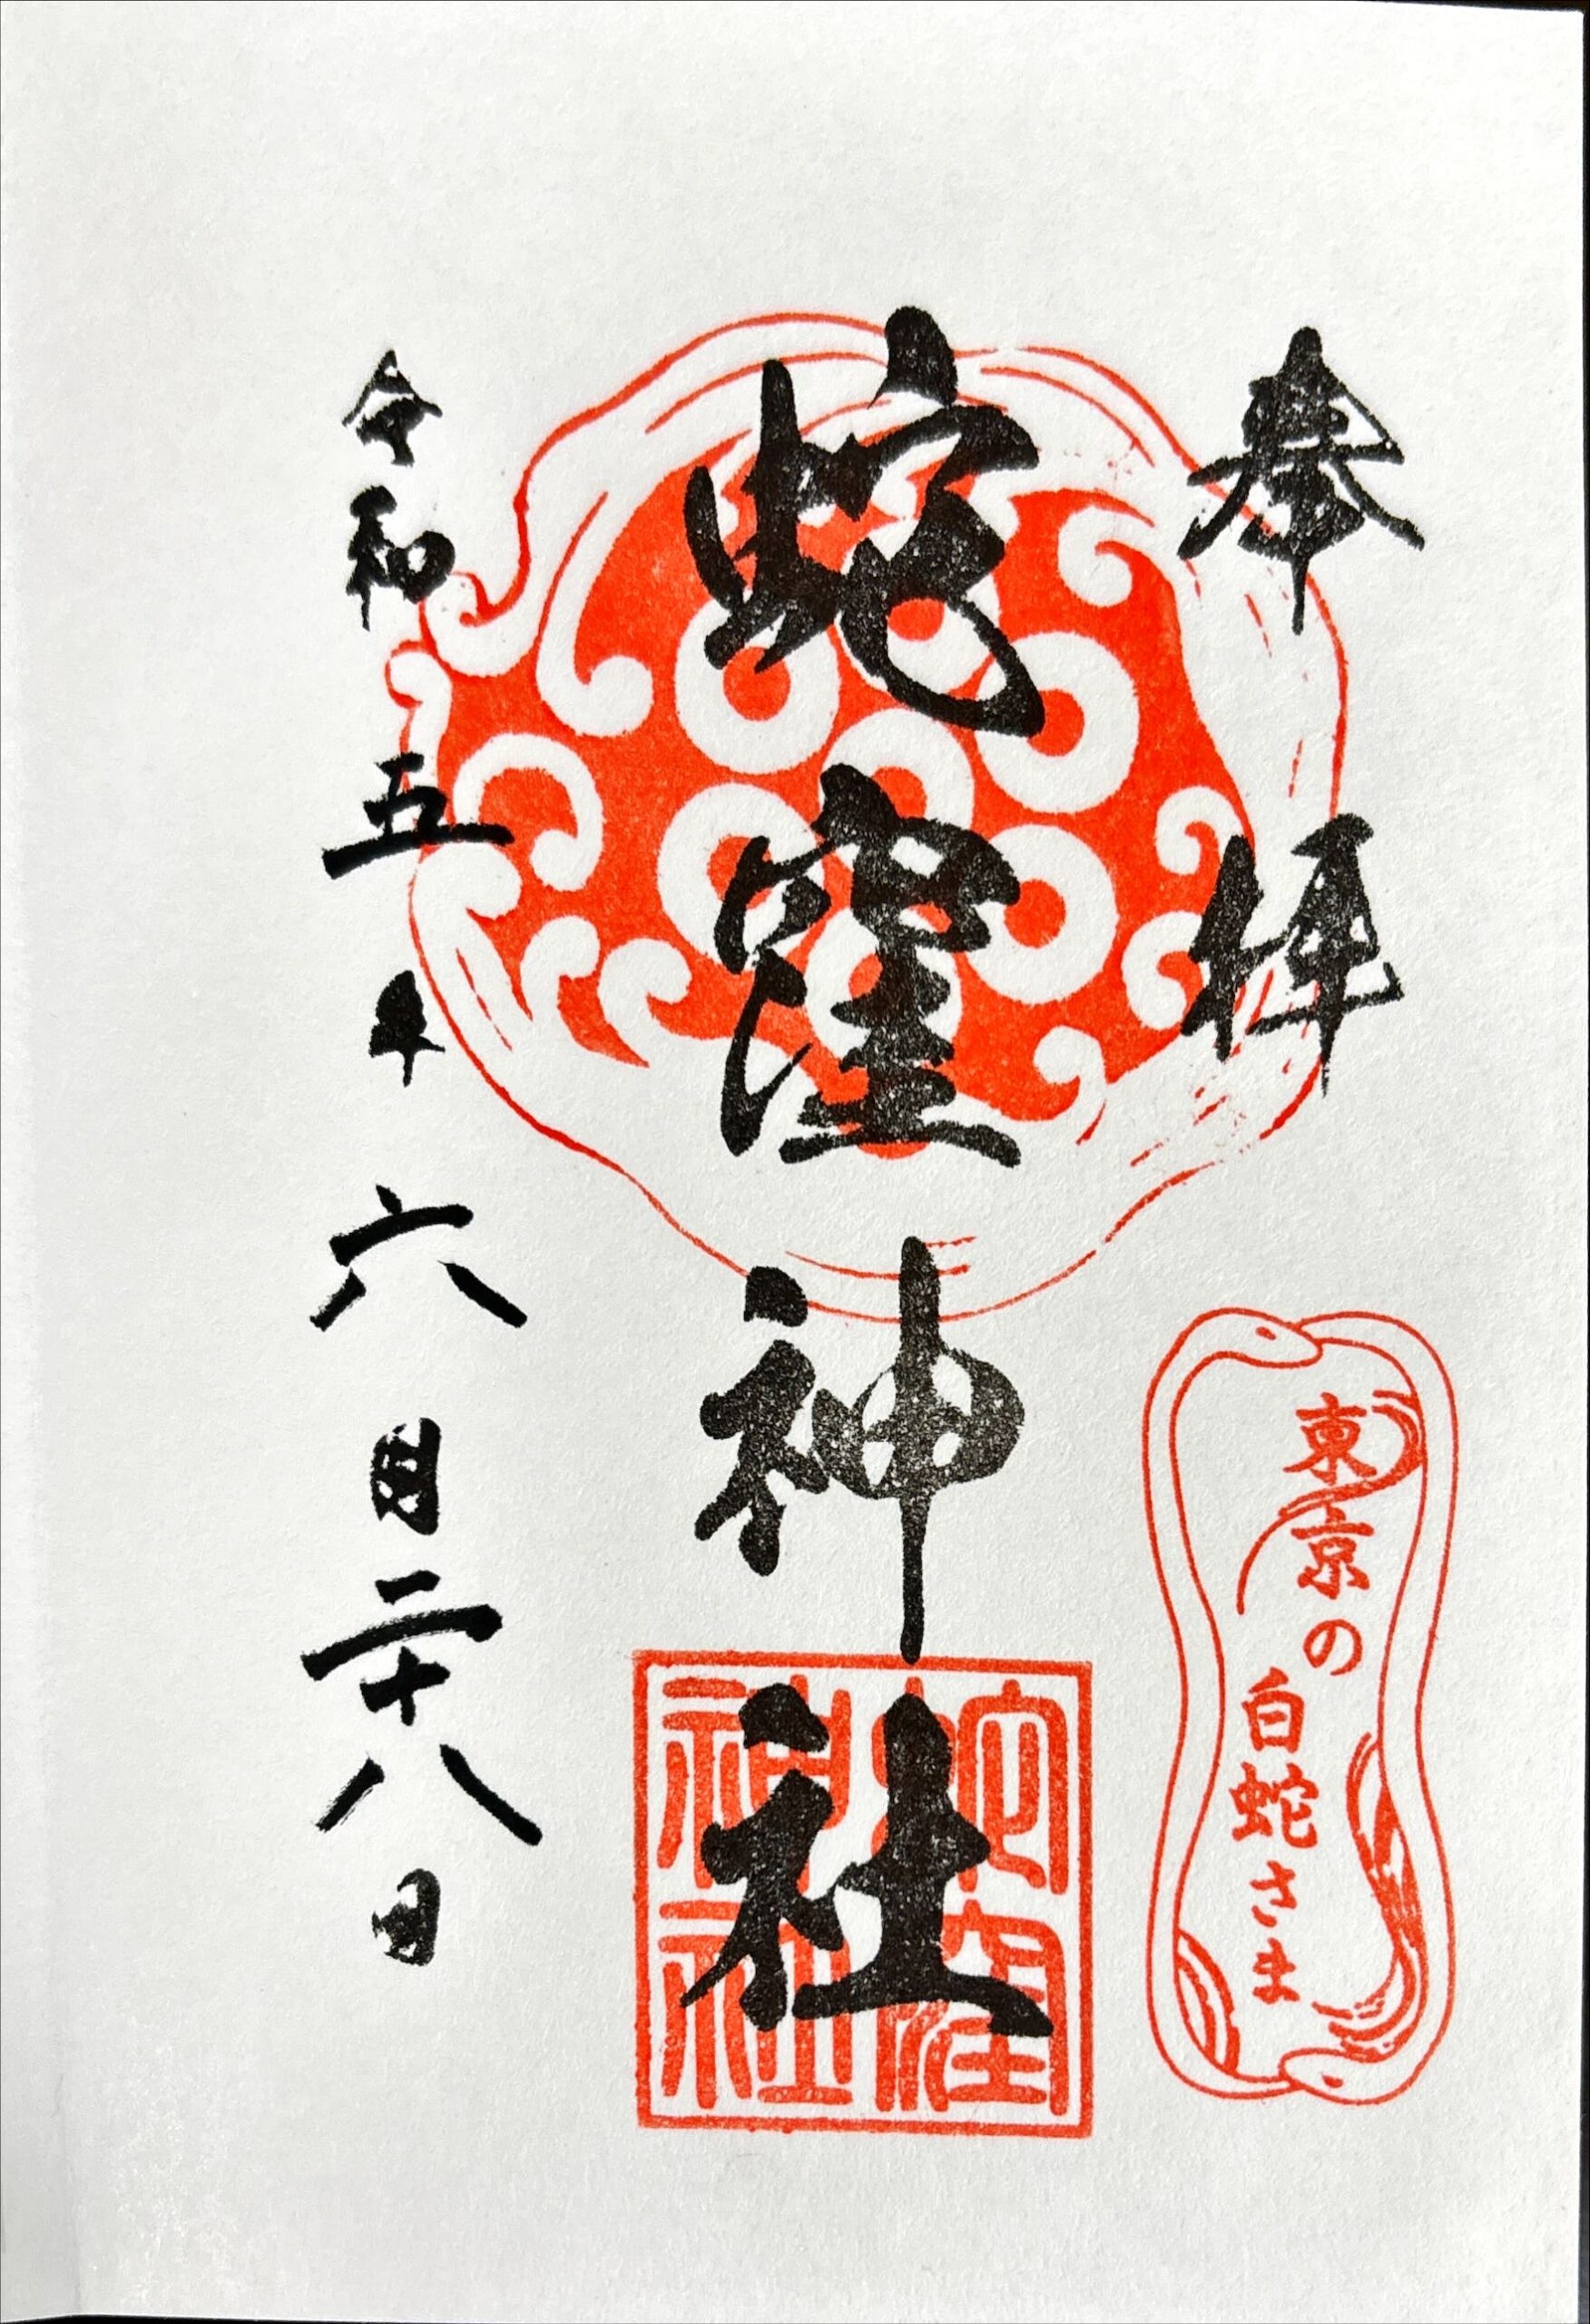 奉拝
東京の
白蛇さま
蛇窪神社
蛇窪
神社
令和五年六月二十八日